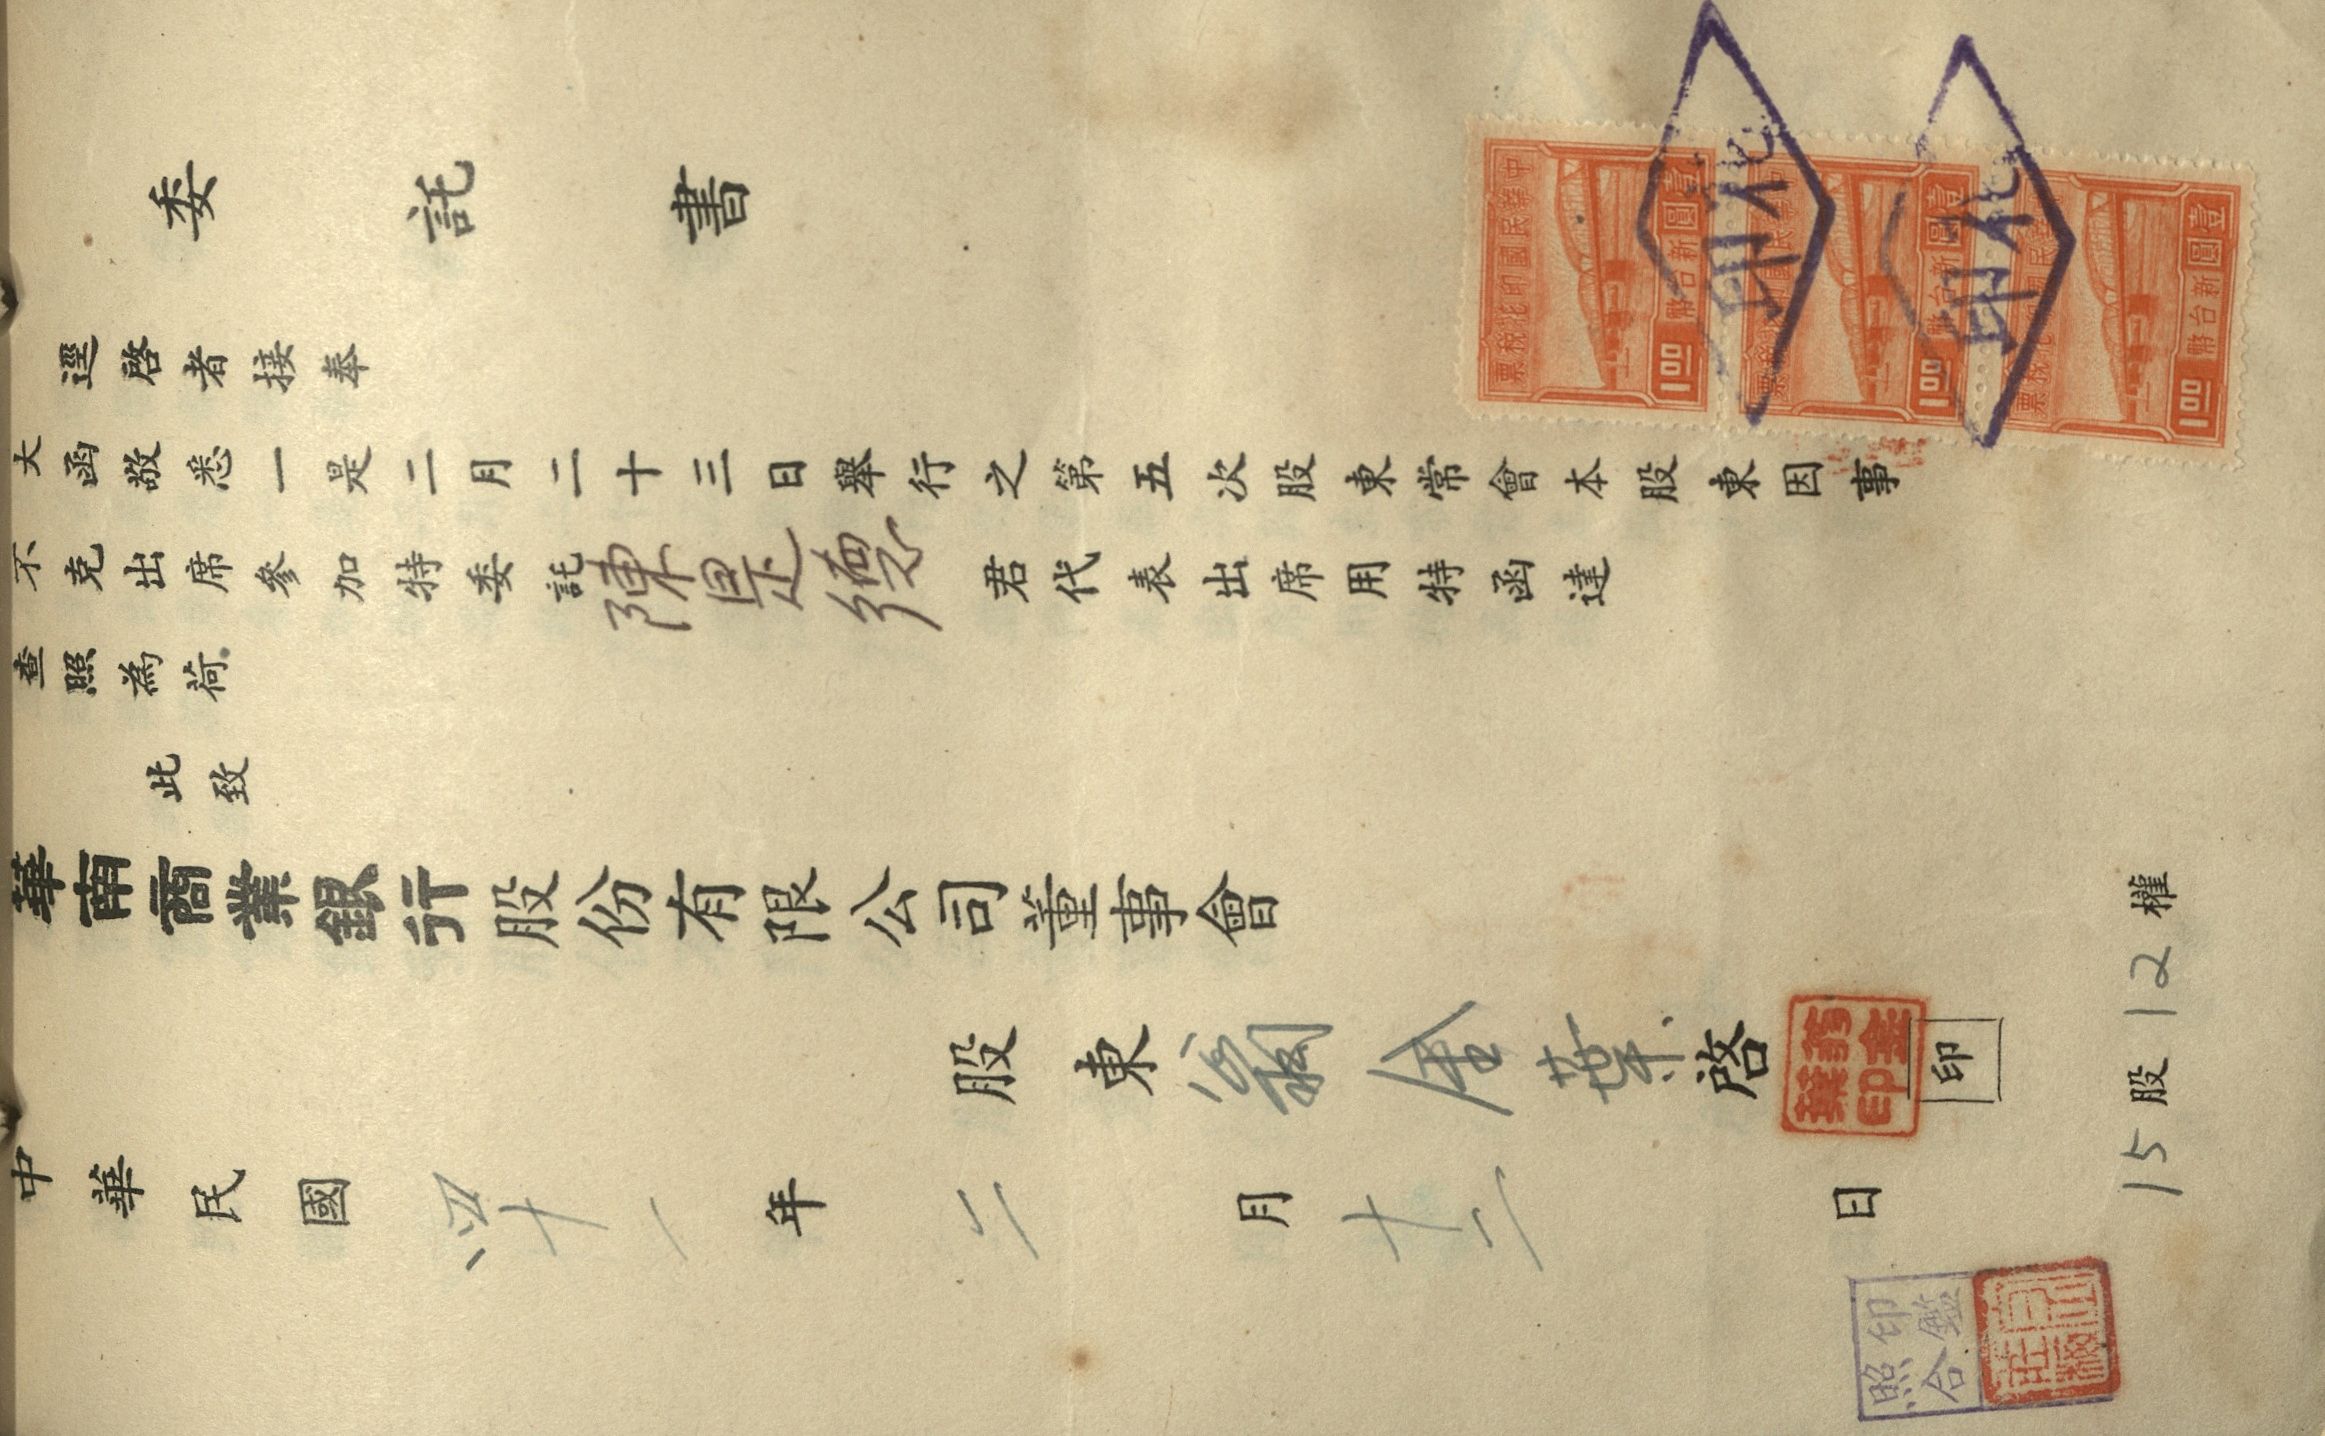 委託書
逕啓者接奉
大函敬悉一是二月二十三日舉行之第五次股東常會本股東因事
不克出席參加特委託陳是德君代表出席用特函達
查照為荷
此致
華南商業銀行股份有限公司董事會
股東翁金葉啓 印
中華民國四十一年二月十二日
15股12權
中華民國印花稅票
壹圓
新台幣
1.00
壹圓
新台幣
1.00
壹圓
新台幣
1.00
印花
印花
翁金葉印
印鑑
照合